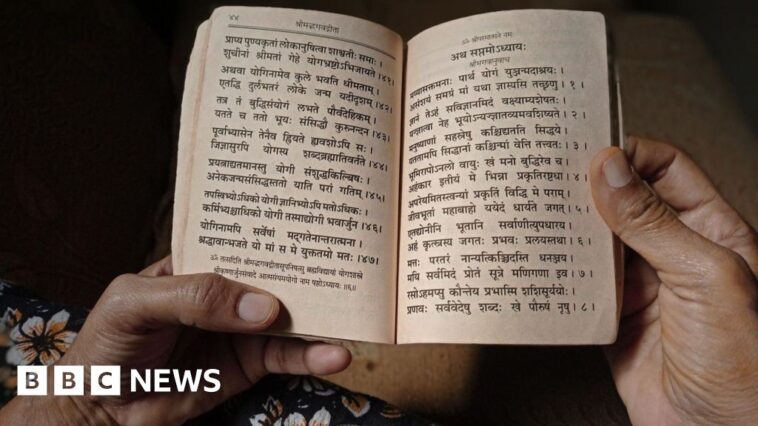 ४४ श्रीमद्भगवद्गीता
प्राप्य पुण्यकृतां लोकानुषित्वा शाश्वतीः समाः ।
शुचीनां श्रीमतां गेहे योगभ्रष्टोऽभिजायते ।४१
अथवा योगिनामेव कुले भवति धीमताम् ।
एतद्धि दुर्लभतरं लोके जन्म यदीदृशम् ।४२
तत्र तं बुद्धिसंयोगं लभते पौर्वदेहिकम् ।
यतते च ततो भूयः संसिद्धौ कुरुनन्दन ।४३
पूर्वाभ्यासेन तेनैव ह्रियते ह्यवशोऽपि सः ।
जिज्ञासुरपि योगस्य शब्दब्रह्मातिवर्तते ।४४
प्रयत्नाद्यतमानस्तु योगी संशुद्धकिल्बिषः ।
अनेकजन्मसंसिद्धस्ततो याति परां गतिम् ।४५
तपस्विभ्योऽधिको योगी ज्ञानिभ्योऽपि मतोऽधिकः ।
कर्मिभ्यश्चाधिको योगी तस्माद्योगी भवार्जुन ।४६
योगिनामपि सर्वेषां मद्गतेनान्तरात्मना ।
श्रद्धावान्भजते यो मां स मे युक्ततमो मतः ।४७
ॐ तत्सदिति श्रीमद्भगवद्गीतासूपनिषत्सु ब्रह्मविद्यायां योगशास्त्रे
श्रीकृष्णार्जुनसंवादे आत्मसंयमयोगो नाम षष्ठोऽध्यायः ॥६॥
ॐ श्रीपरमात्मने नमः
अथ सप्तमोऽध्यायः
श्रीभगवानुवाच
मय्यासक्तमनाः पार्थ योगं युञ्जन्मदाश्रयः ।
असंशयं समग्रं मां यथा ज्ञास्यसि तच्छृणु । १
ज्ञानं तेऽहं सविज्ञानमिदं वक्ष्याम्यशेषतः ।
यज्ज्ञात्वा नेह भूयोऽन्यज्ज्ञातव्यमवशिष्यते । २
मनुष्याणां सहस्रेषु कश्चिद्यतति सिद्धये ।
यततामपि सिद्धानां कश्चिन्मां वेत्ति तत्त्वतः । ३
भूमिरापोऽनलो वायुः खं मनो बुद्धिरेव च ।
अहंकार इतीयं मे भिन्ना प्रकृतिरष्टधा । ४
अपरेयमितस्त्वन्यां प्रकृतिं विद्धि मे पराम् ।
जीवभूतां महाबाहो ययेदं धार्यते जगत् । ५
एतद्योनीनि भूतानि सर्वाणीत्युपधारय ।
अहं कृत्स्नस्य जगतः प्रभवः प्रलयस्तथा । ६
मत्तः परतरं नान्यत्किञ्चिदस्ति धनञ्जय ।
मयि सर्वमिदं प्रोतं सूत्रे मणिगणा इव । ७
रसोऽहमप्सु कौन्तेय प्रभास्मि शशिसूर्ययोः ।
प्रणवः सर्ववेदेषु शब्दः खे पौरुषं नृषु । ८
BBC NEWS